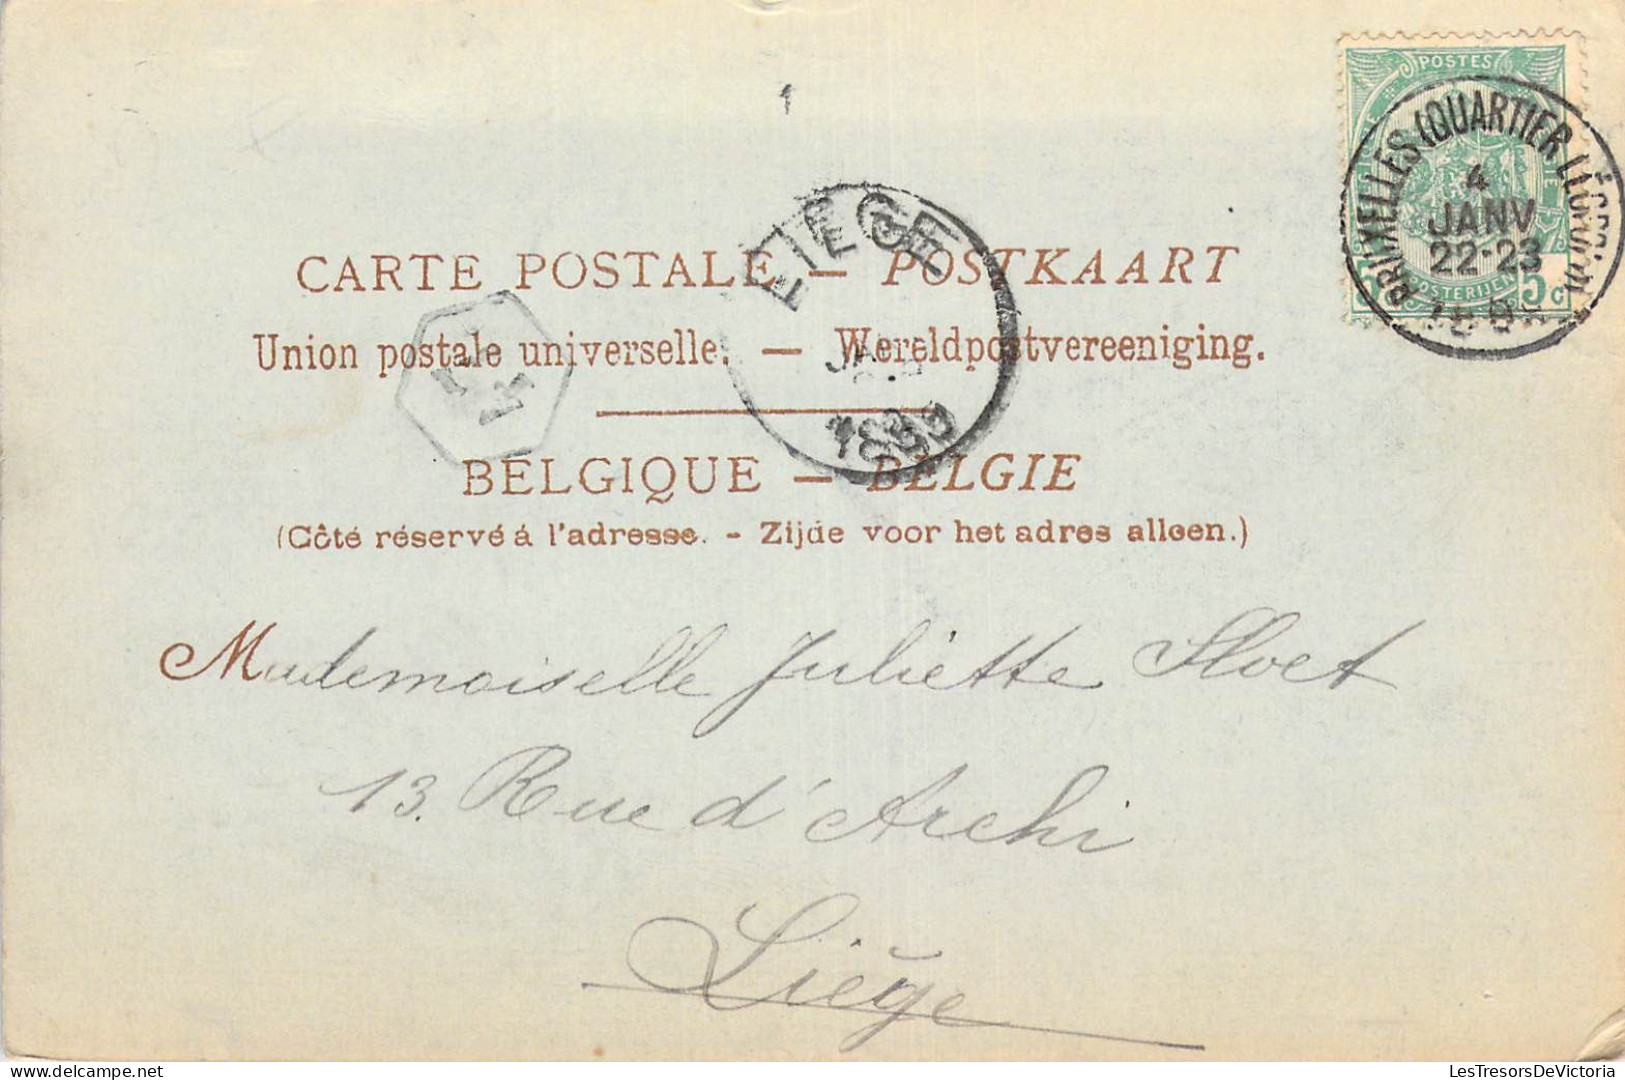 1
POSTES
BRUXELLES (QUARTIER LÉOPOLD)
4
JANV
22-23
POSTERIJEN
5c
LIEGE
1899
CARTE POSTALE — POSTKAART
Union postale universelle. — Wereldpostvereeniging.
BELGIQUE — BELGIE
(Côté réservé á l'adresse. - Zijde voor het adres alleen.)
Mademoiselle Juliette Sloet
13. Rue d'Archi
Liège
www.delcampe.net
LesTresorsDeVictoria